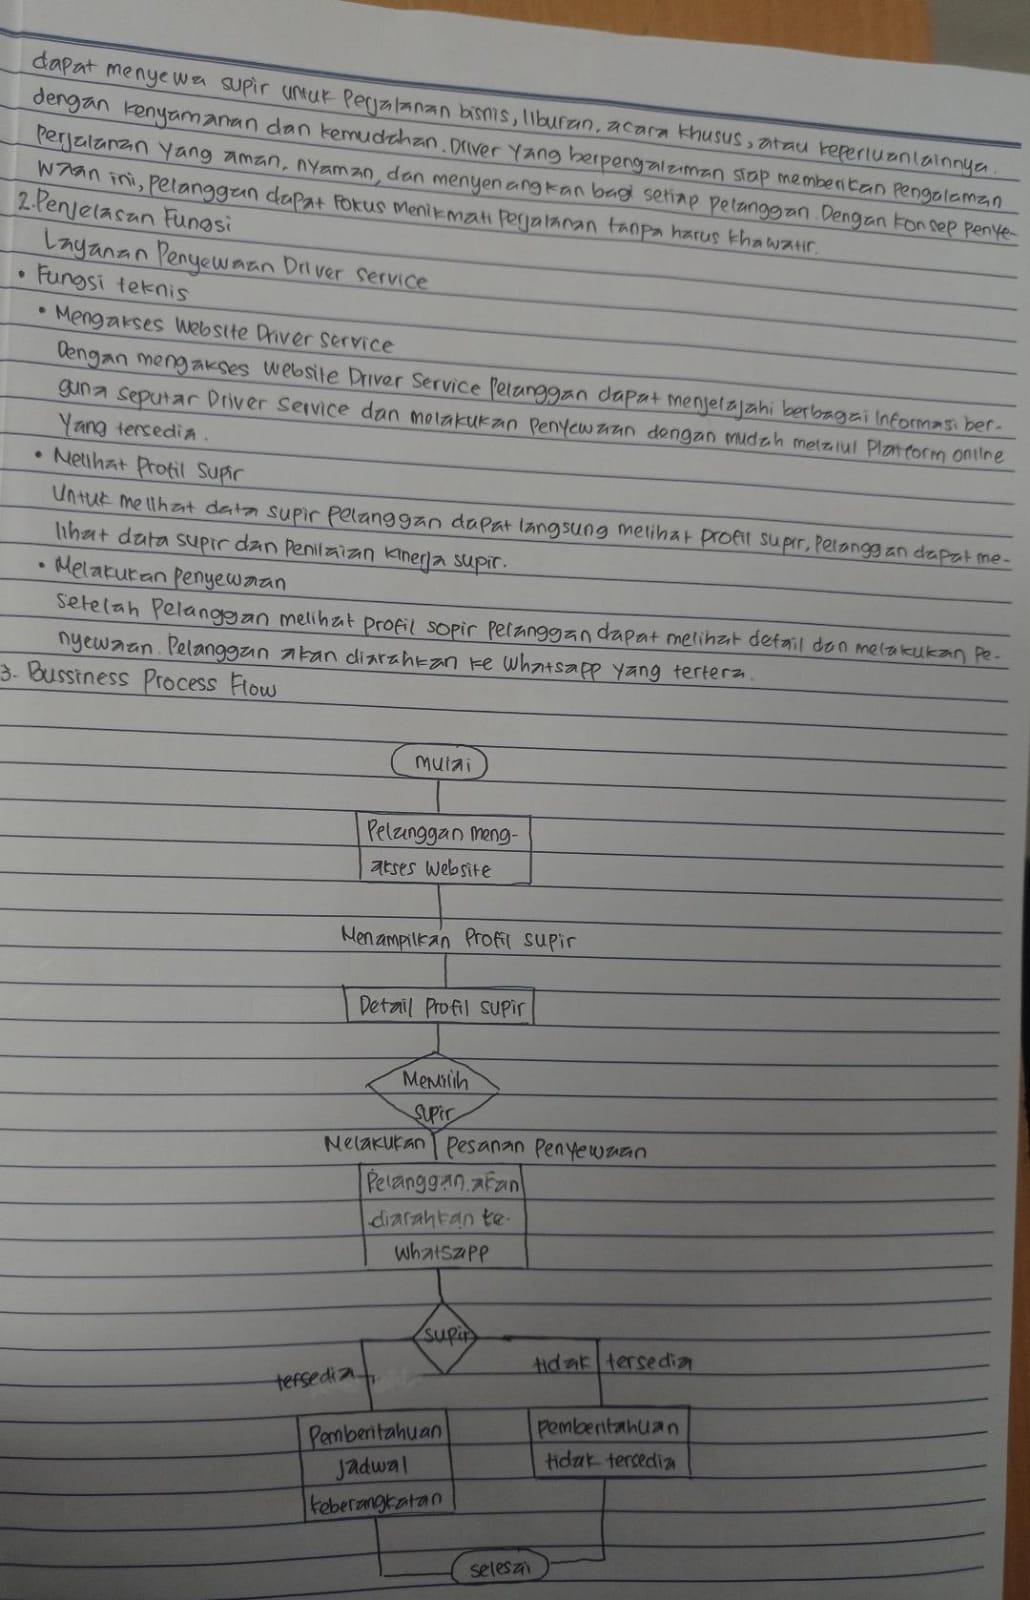 dapat menyewa supir untuk Perjalanan bisnis, liburan, acara khusus, atau keperluanlainnya.
dengan kenyamanan dan kemudahan. Driver yang berpengalaman siap memberikan Pengalaman
Perjalanan yang aman, nyaman, dan menyenangkan bagi setiap pelanggan. Dengan konsep penye-
waan ini, pelanggan dapat Fokus menikmati Perjalanan tanpa harus khawatir.
2. Penjelasan Fungsi
Layanan Penyewaan Driver service
• Fungsi teknis
• Mengakses Website Driver service
Dengan mengakses website Driver Service Pelanggan dapat menjelajahi berbagai Informasi ber-
guna seputar Driver Service dan melakukan penyewaan dengan mudah melalui Platform online
Yang tersedia.
• Melihat Profil Supir
Untuk melihat data supir pelanggan dapat langsung melihat profil supir, Pelanggan dapat me-
lihat data supir dan Penilaian kinerja supir.
• Melakukan penyewaan
Setelah Pelanggan melihat profil sopir pelanggan dapat melihat detail dan melakukan Pe-
nyewaan. Pelanggan akan diarahkan ke whatsapp yang tertera.
3. Bussiness Process Flow
mulai
Pelanggan meng-
akses website
Menampilkan Profil supir
Detail Profil supir
Memilih
supir
Melakukan Pesanan Penyewaan
Pelanggan akan
diarahkan ke
whatsapp
supir
tersedia
tidak tersedia
Pemberitahuan
Jadwal
keberangkatan
pemberitahuan
tidak tersedia
selesai